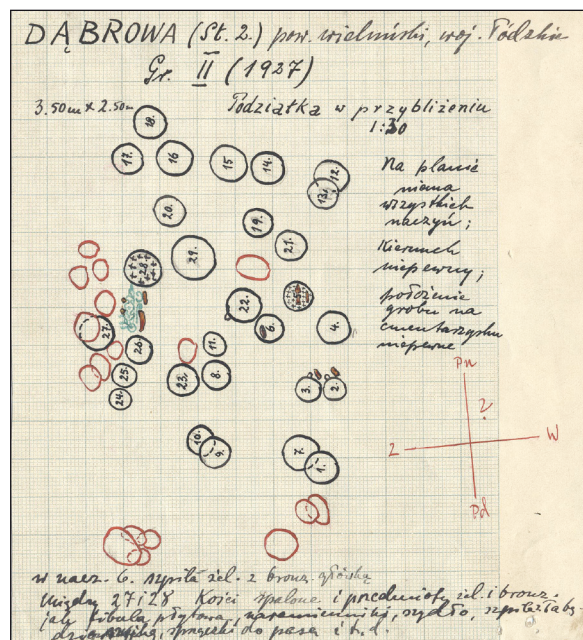 DĄBROWA (St. 2.) pow. wieluński, woj. Łódzkie
Gr. II (1927)
3.50m x 2.50m
Podziałka w przybliżeniu
1:30
Na planie
niema
wszystkich
naczyń;
Kierunek
niepewny;
położenie
grobu na
cmentarzysku
niepewne
18.
17.
16.
15.
14.
12.
13.
20.
19.
21.
29.
28.
22.
6.
4.
27.
26.
11.
25.
23.
8.
3.
2.
24.
10.
9.
7.
1.
Pn
?
Z
W
Pd
w nacz. 6. szpila żel. z bronz. główką
Między 27 i 28 Kości spalone i przedmioty żel. i bronz.
jak fibula płytowa, naramienniki, szydło, szpila
sprzączki do pasa i t. d.